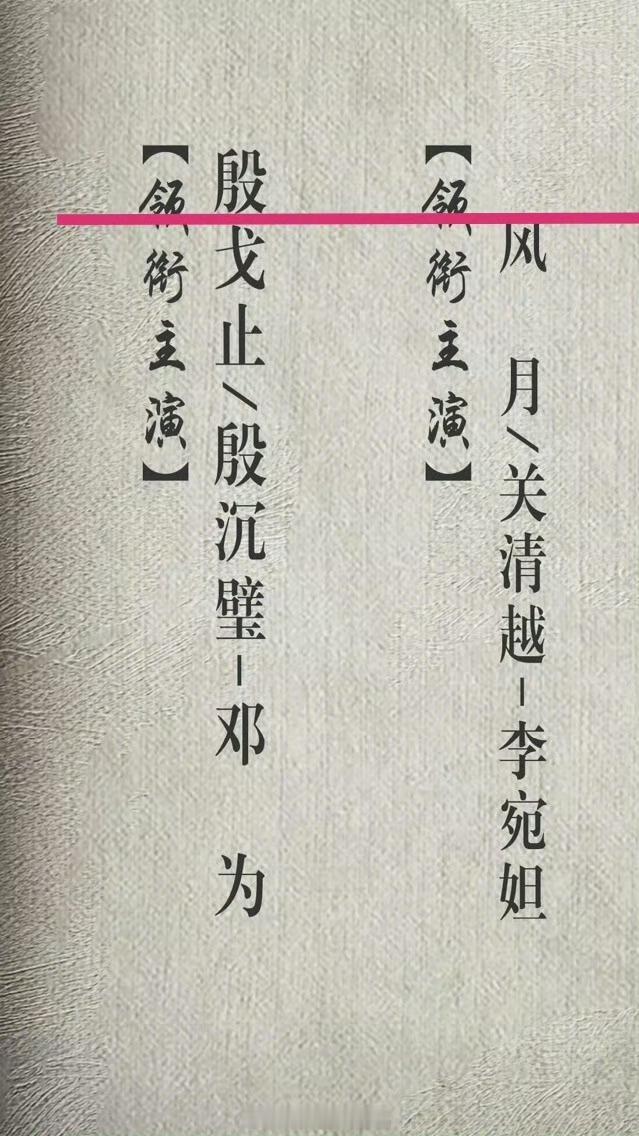 风月/关清越-李宛妲
【领衔主演】
殷戈止/殷沉璧-邓为
【领衔主演】